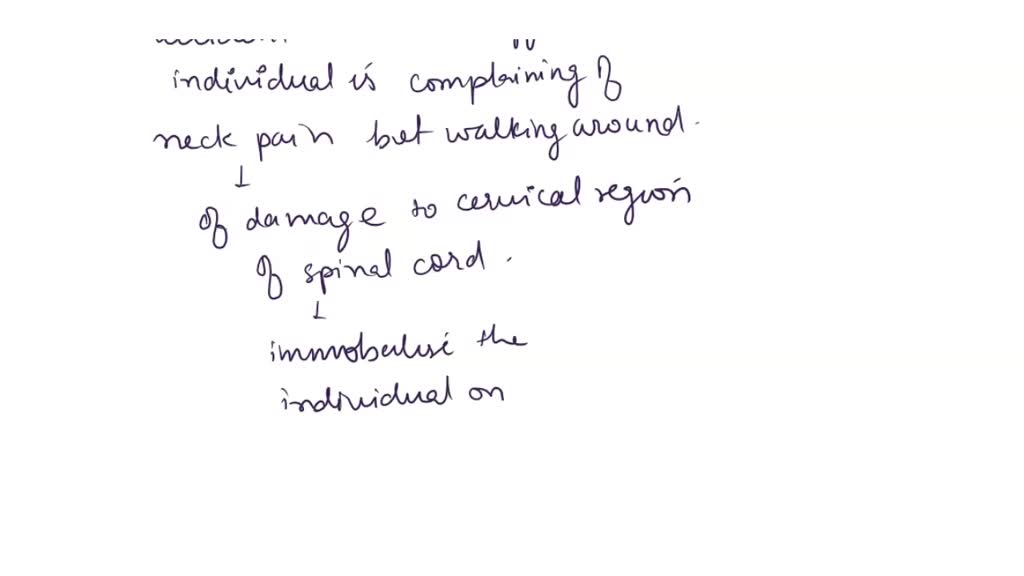 individual is complaining of
neck pain but walking around.
↓
of damage to cervical region
of spinal cord.
↓
immobalise the
individual on